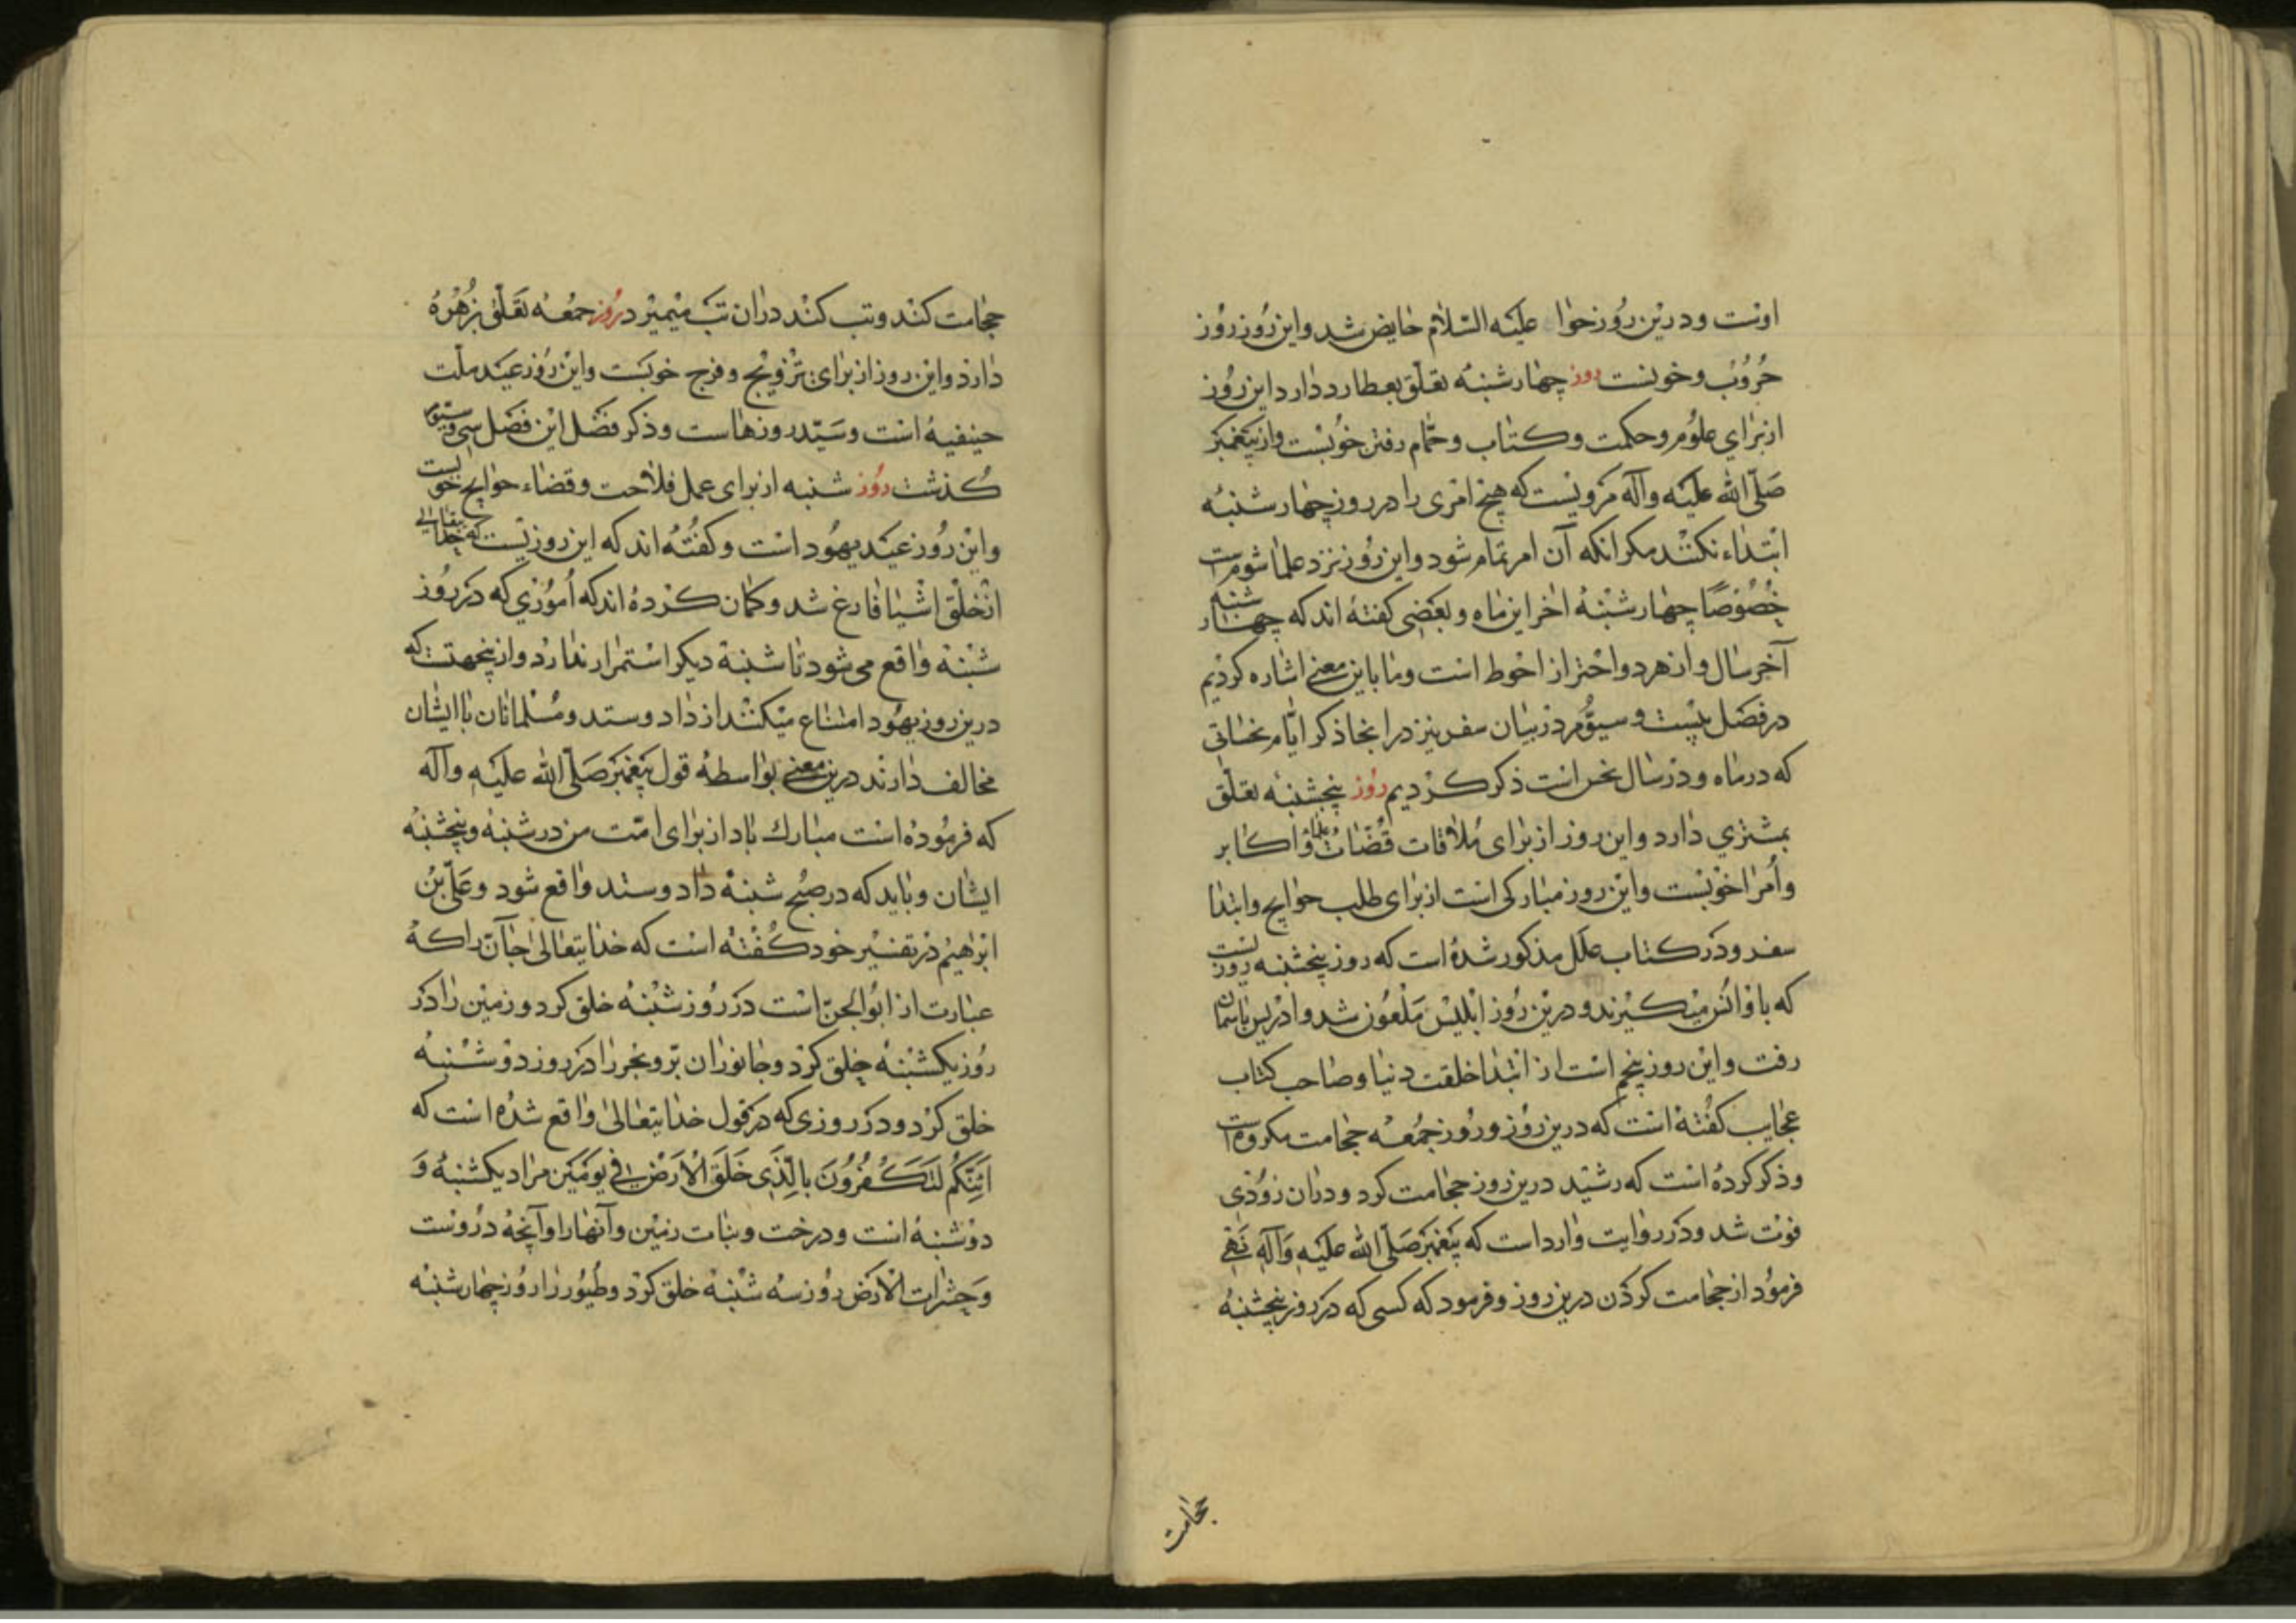 اوست و درین روز حوا علیه السلام حایض شد و این روز روز
حروب و خونست روز چهارشنبه تعلق بعطارد دارد این روز
از برای علوم و حکمت و کتاب و حمام رفتن خوبست و از پیغمبر
صلی الله علیه وآله مرویست که هیچ امری را در روز چهارشنبه
ابتداء نکنند مکر انکه آن امر تمام شود و این روز نزد علما شوم است
خصوصا چهارشنبه اخر این ماه و بعضی کفته اند که چهارشنبه
آخر سال و از هر دو احتراز احوط است و ما باین معنی اشاره کردیم
در فصل بیست و سیوم در بیان سفر نیز در اینجا ذکر ایام نحساتی
که در ماه و در سال نحس است ذکر کردیم روز پنجشنبه تعلق
بمشتری دارد و این روز از برای ملاقات قضات و علما و اکابر
و امرا خوبست و این روز مبارکی است از برای طلب حوایج و ابتدا
سفر و در کتاب علل مذکور شده است که روز پنجشنبه روزیست
که با و انس میکیرند و درین روز ابلیس ملعون شد و ادریس باسمان
رفت و این روز پنجم است از ابتدا خلقت دنیا و صاحب کتاب
عجایب کفته است که درین روز و روز جمعه حجامت مکروه است
و ذکر کرده است که رشید درین روز حجامت کرد و دران زودی
فوت شد و در روایت وارد است که پیغمبر صلی الله علیه وآله نهی
فرمود از حجامت کردن درین روز و فرمود که کسی که در روز پنجشنبه
حجامت
حجامت کند و تب کند دران تب میمیرد روز جمعه تعلق بزهره
دارد و این روز از برای تزویج و فرج خوبست و این روز عید ملت
حنیفیه است و سید روزهاست و ذکر فضل این فصل سی و سیوم
کذشت روز شنبه از برای عمل فلاحت و قضاء حوایج خوبست
و این روز عید یهود است و کفته اند که این روزیست که خدایتعالی
از خلق اشیا فارغ شد و کمان کرده اند که اموری که در روز
شنبه واقع می شود تا شنبه دیکر استمرار ندارد و ازینجهتست که
درین روز یهود امتناع میکنند از داد و ستد و مسلمانان با ایشان
مخالف دارند درین معنی بواسطه قول پیغمبر صلی الله علیه وآله
که فرموده است مبارک باد از برای امت من در شنبه و پنجشنبه
ایشان و باید که در صبح شنبه داد و ستد واقع شود و علی بن
ابراهیم در تفسیر خود کفته است که خدایتعالی جان را که
عبارت از ابو الجن است در روز شنبه خلق کرد و زمین را در
روز یکشنبه خلق کرد و جانوران بر و بحر را در روز دوشنبه
خلق کرد و در روزی که در قول خدایتعالی واقع شده است که
ائنکم لتکفرون بالذی خلق الارض فی یومین مراد یکشنبه و
دوشنبه است و درخت و نبات زمین و آنهارا و آنچه دروست
و حشرات الارض روز سه شنبه خلق کرد و طیور را روز چهارشنبه